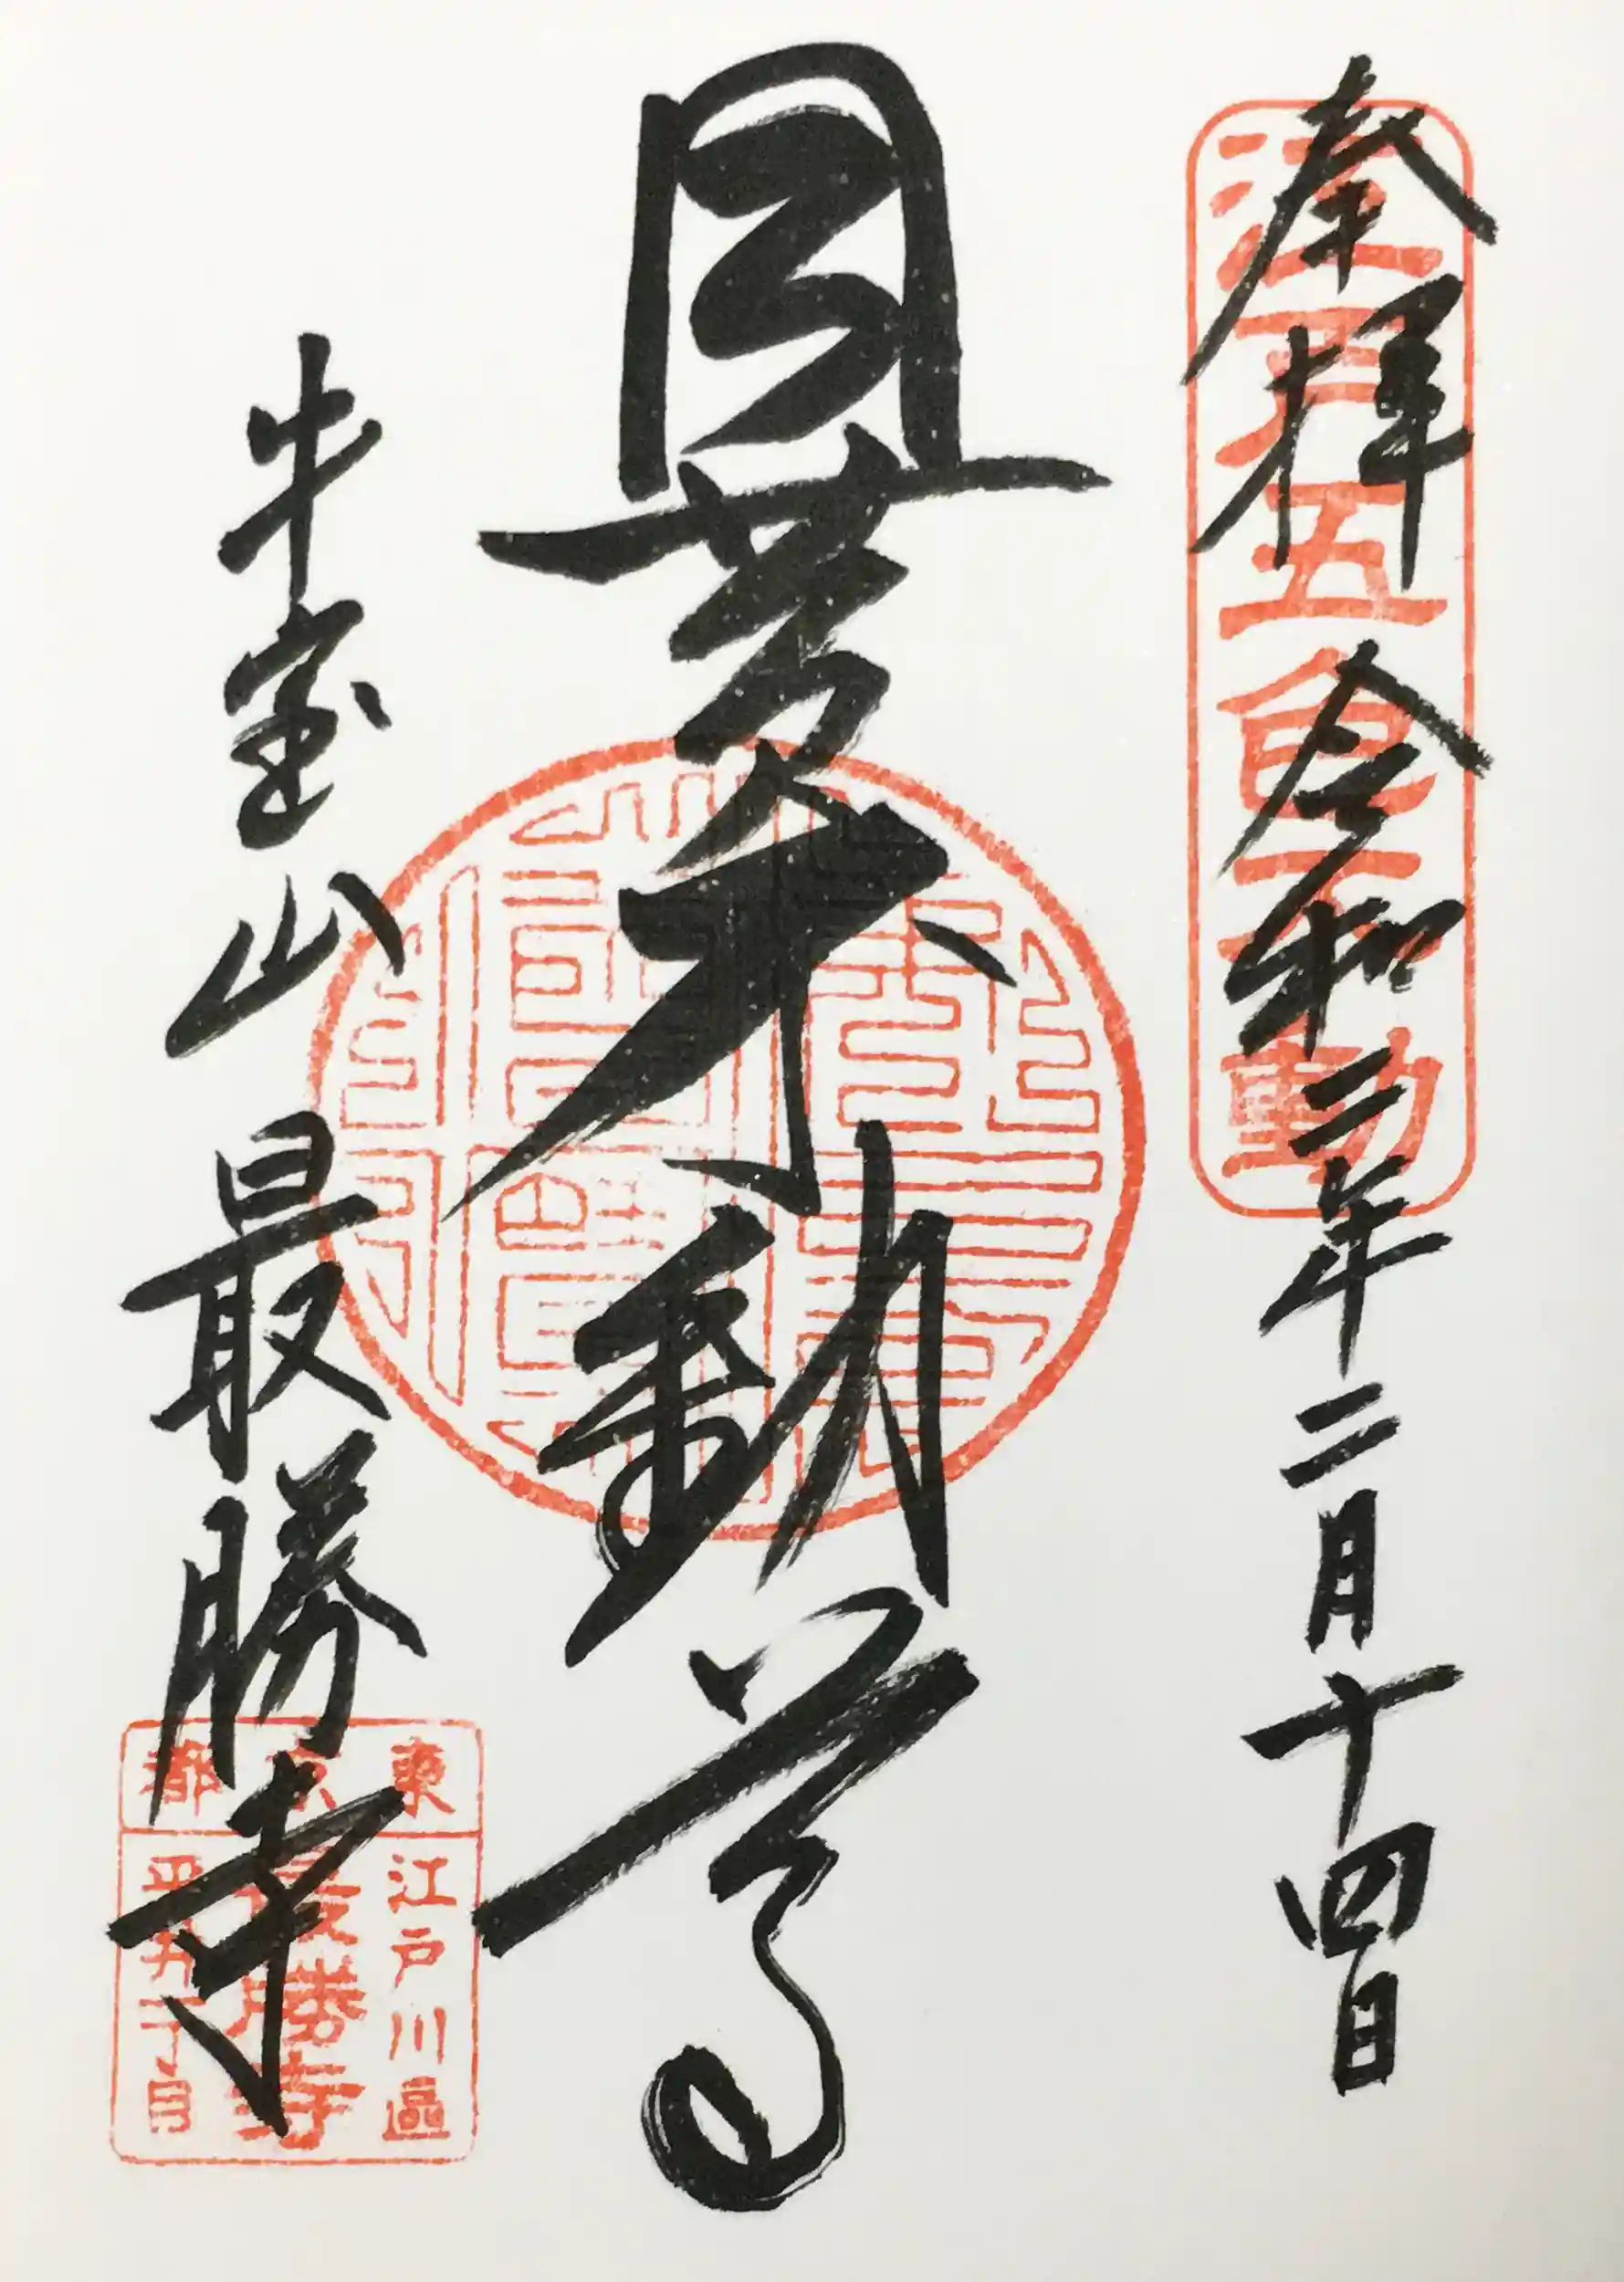 奉拝 令和二年二月十四日
江戸五色不動
目黄不動尊
牛宝山 最勝寺
東京都
江戸川區
最勝寺
平井 丁目